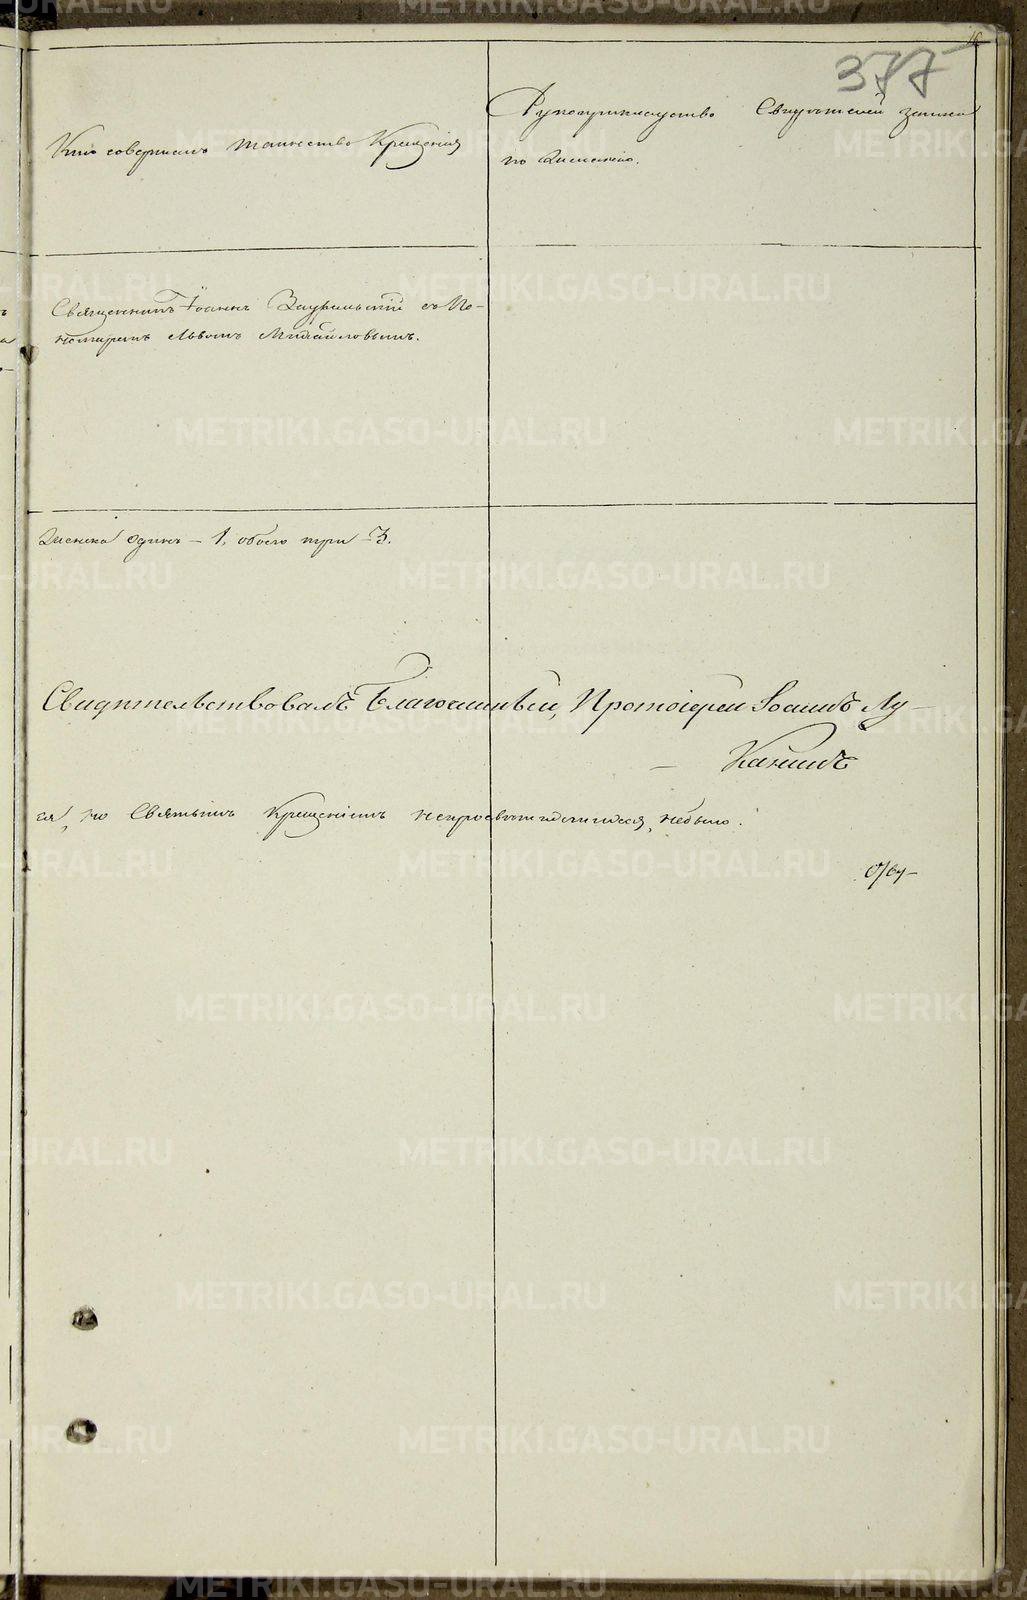 377
Кто совершалъ таинство Крещенія
Рукоприкладство Свидѣтелей записи
по желанію.
Священникъ Іоаннъ Зауральскій съ По-
номаремъ Львомъ Михайловымъ.
Женска одинъ – 1, обоего три – 3.
Свидѣтельствовалъ Благочинный, Протоіерей Іоаннъ Лу-
– Канинъ
ся, но Святымъ Крещеніемъ непросвѣтившихся, небыло.
METRIKI.GASO-URAL.RU